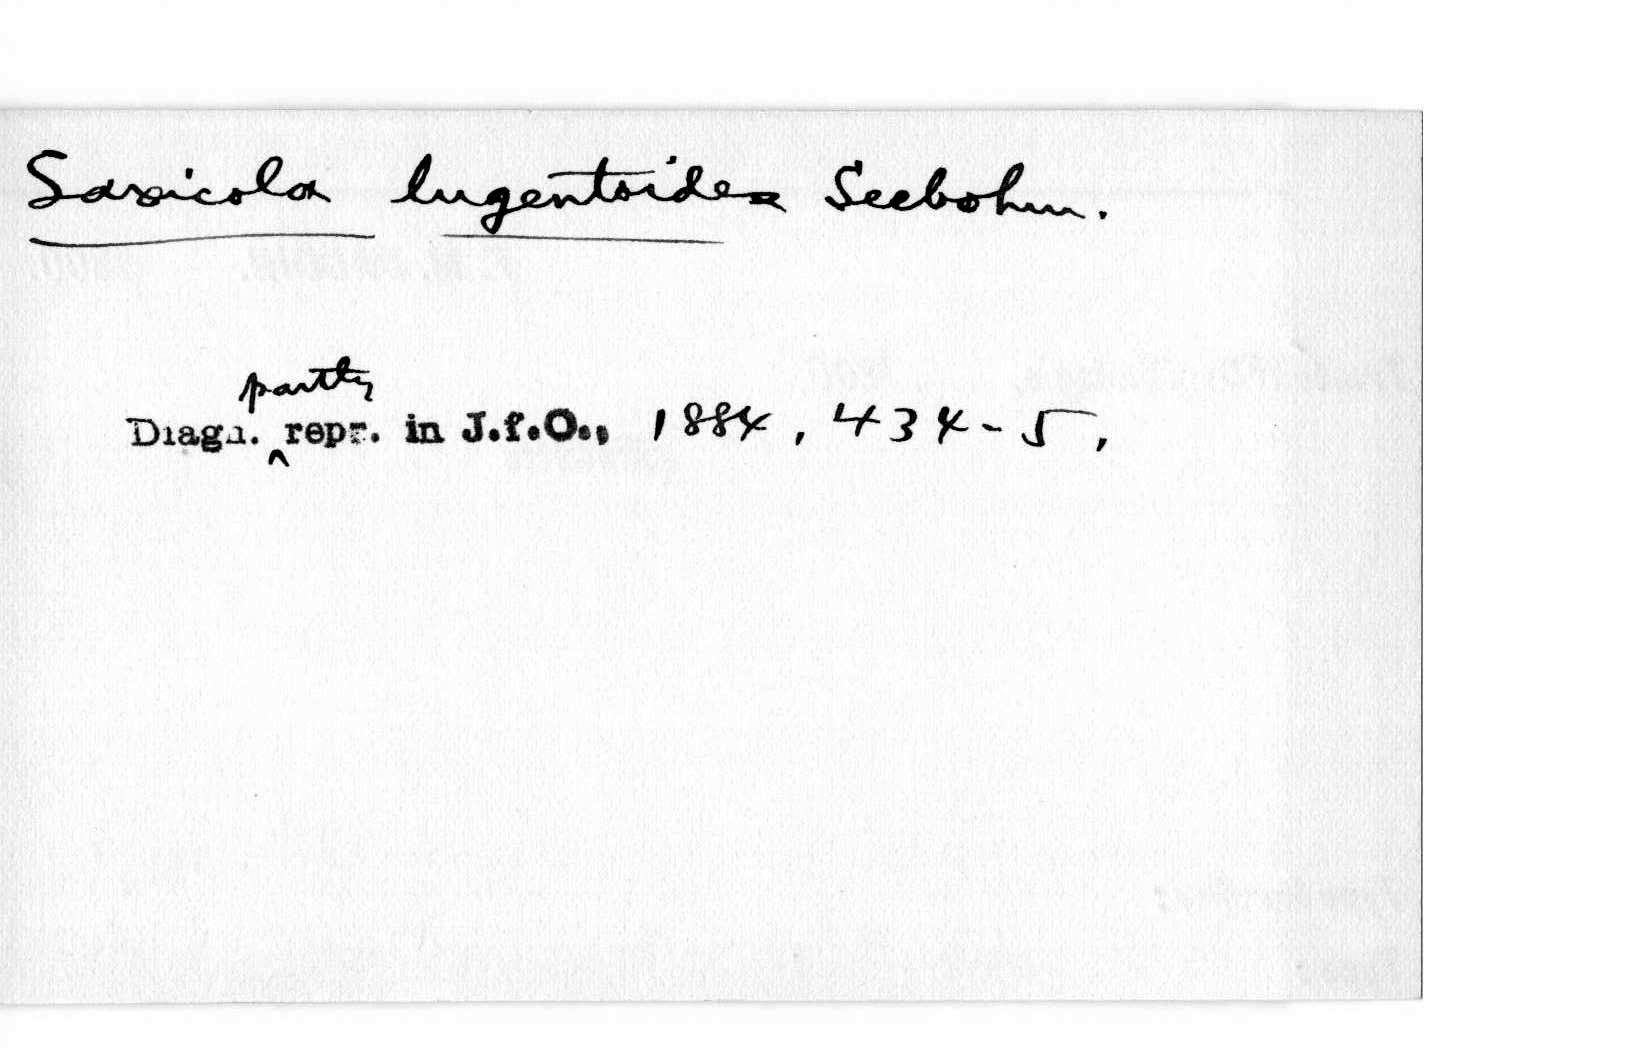 Saxicola lugentoides Seebohm.
partly
Diagn. ^ repr. in J.f.O., 1884, 434-5,